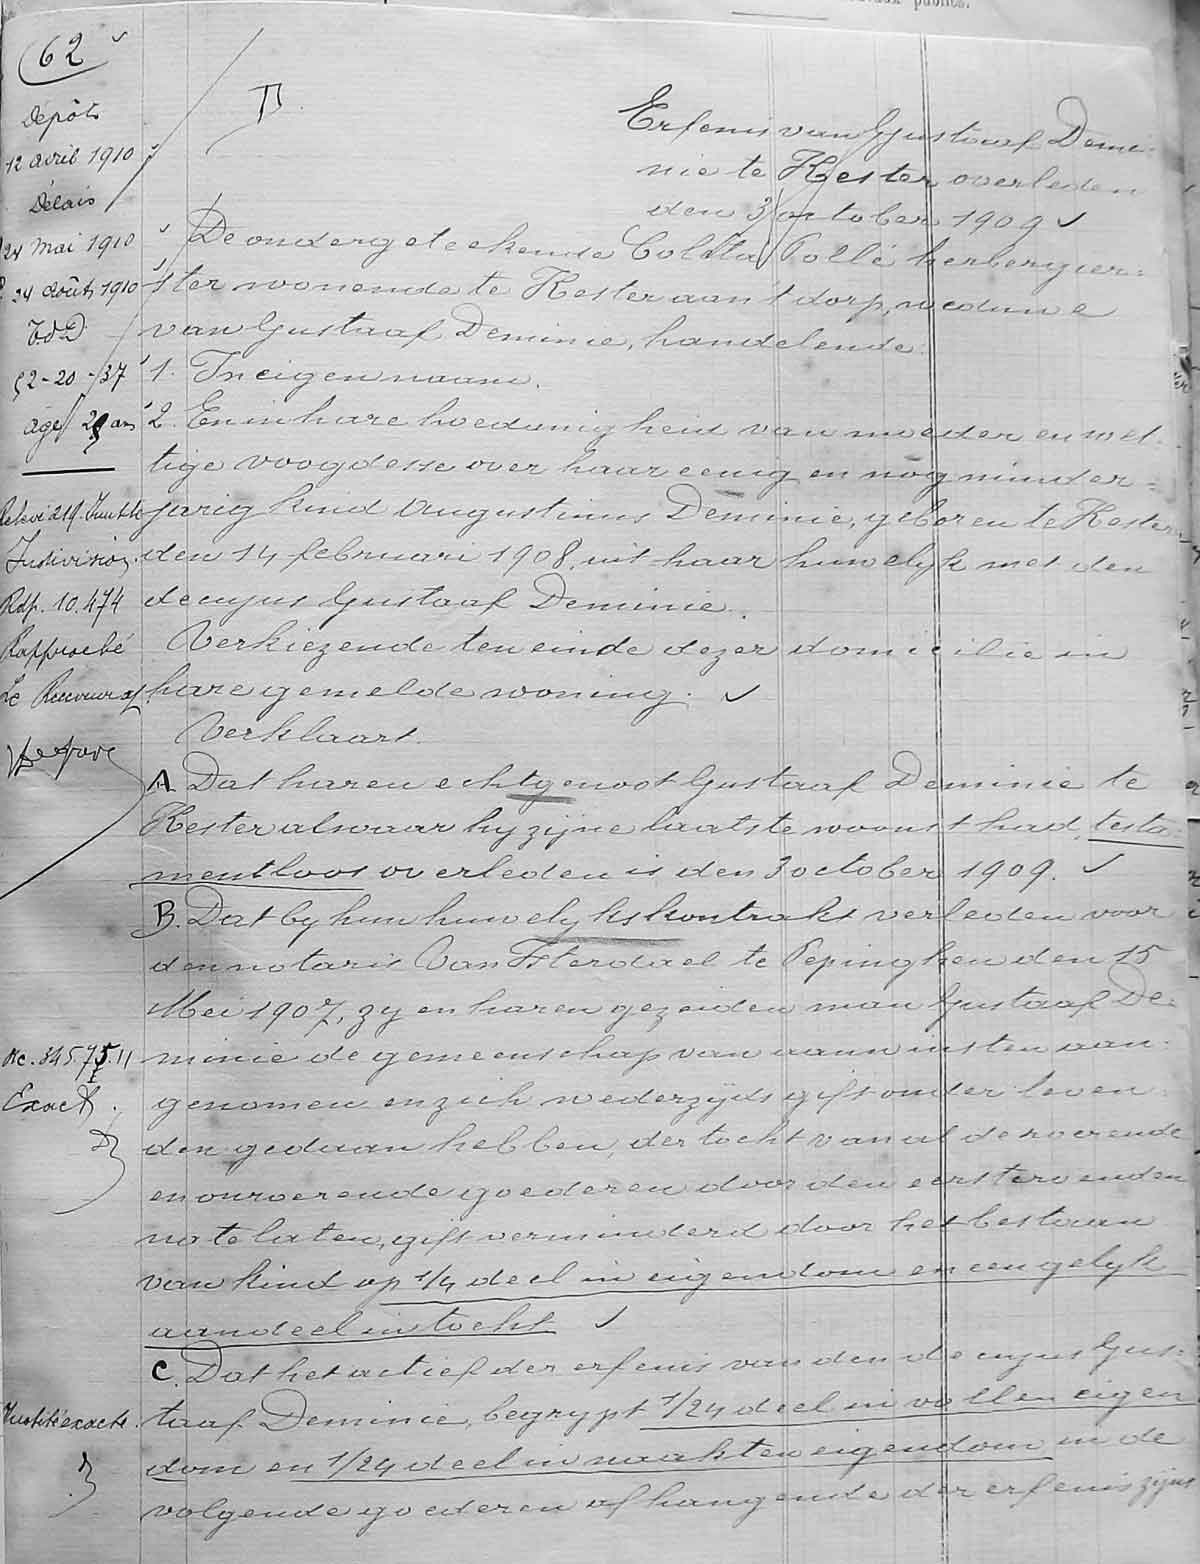 publics.
62
Dépôt
12 avril 1910
Délais
24 mai 1910
24 août 1910
T.d.D
52-20-37
âgé 29 ans
Indivision
Rdf. 10.474
Rapproché
Le Receveur
Exact.
exacte.
Erfenis van Gustaaf Demi-
nie te Kester overleden
den 3 october 1909
De ondergeteekende Coleta Pollé herbergier-
ster wonende te Kester aan 't dorp, weduwe
van Gustaaf Deminie, handelende:
1. In eigen naam.
2. En in hare hoedanigheid van moeder en wet-
tige voogdesse over haar eenig en nog minder-
jarig kind Augustinus Deminie, geboren te Kester
den 14 februari 1908, uit haar huwelyk met den
decujus Gustaaf Deminie.
Verkiezende ten einde dezer domicilie in
hare gemelde woning.
Verklaart.
A. Dat haren echtgenoot Gustaaf Deminie te
Kester alwaar hy zijne laatste woonst had, testa-
mentloos overleden is den 3 october 1909.
B. Dat by hun huwelykskontrakt verleden voor
den notaris Van Isterdael te Pepinghen den 15
Mei 1907, zy en haren gezeiden man Gustaaf De-
minie de gemeenschap van aanwinsten aan-
genomen en zich wederzyds gift onder leven-
den gedaan hebben, der tocht van al de roerende
en onroerende goederen door den eerstervenden
na te laten, gift verminderd door het bestaan
van kind op 1/4 deel in eigendom en een gelyk
aandeel in tocht
C. Dat het actief der erfenis van den decujus Gus-
taaf Deminie, begrypt 1/24 deel in vollen eigen
dom en 1/24 deel in naakten eigendom in de
volgende goederen afhangende der erfenis zijns